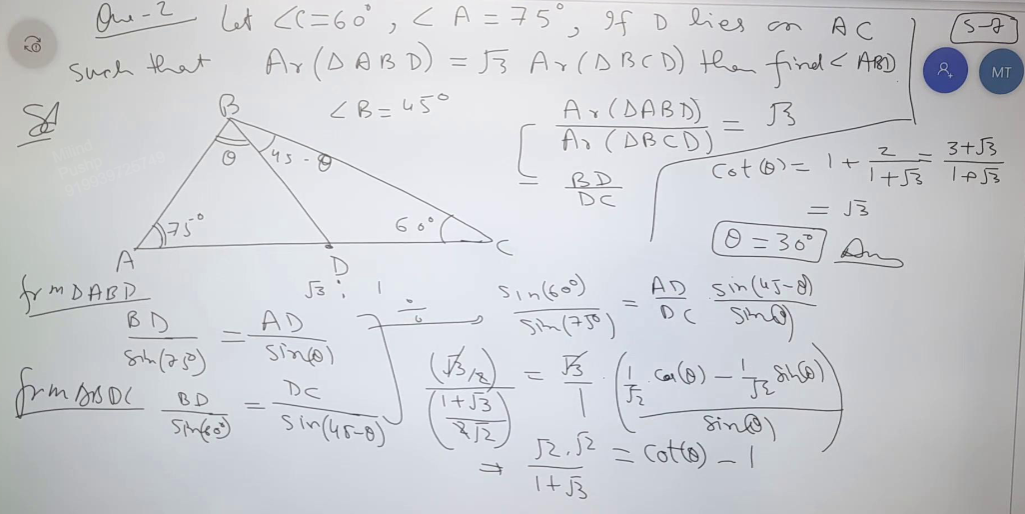 Que-2 Let ∠C=60°, ∠A=75°, If D lies on AC
such that Ar(ΔABD) = √3 Ar(ΔBCD) then find ∠ABD
S-7
MT
Sol
∠B=45°
B
θ 45-θ
75° 60°
A D C
√3 : 1
Ar(ΔABD) / Ar(ΔBCD) = √3
= BD/DC
cot(θ) = 1 + 2/(1+√3) = (3+√3)/(1+√3)
= √3
θ = 30° Ans
frm ΔABD
BD/sin(75°) = AD/sin(θ)
frm ΔBDC BD/sin(60°) = DC/sin(45-θ)
÷
sin(60°)/sin(75°) = AD/DC sin(45-θ)/sin(θ)
(√3/2)/((1+√3)/(2√2)) = √3/1 · ((1/√2 · cos(θ) - 1/√2 sin(θ))/sin(θ))
⇒ √2.√2/(1+√3) = cot(θ) - 1